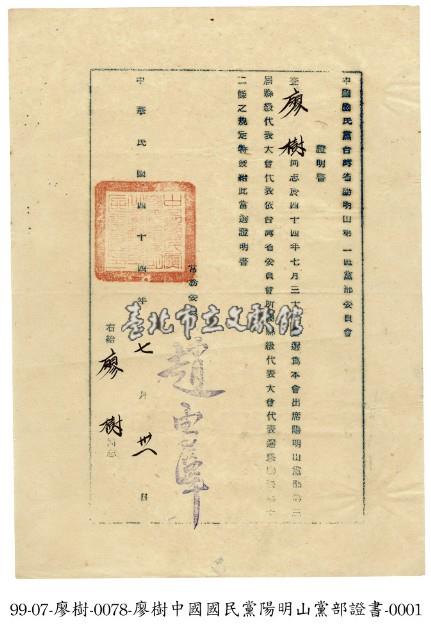 中國國民黨台灣省陽明山第一區黨部委員會
證明書
查廖樹同志於四十四年七月三
選為本會出席陽明山黨部第三
屆縣級代表大會代表依台灣省委員會所
縣級代表大會代表選舉
二條之規定特發給此當選證明書
常務委
趙
右給廖樹同志
中華民國四十四年七月卅日
臺北市立文獻館
99-07-廖樹-0078-廖樹中國國民黨陽明山黨部證書-0001